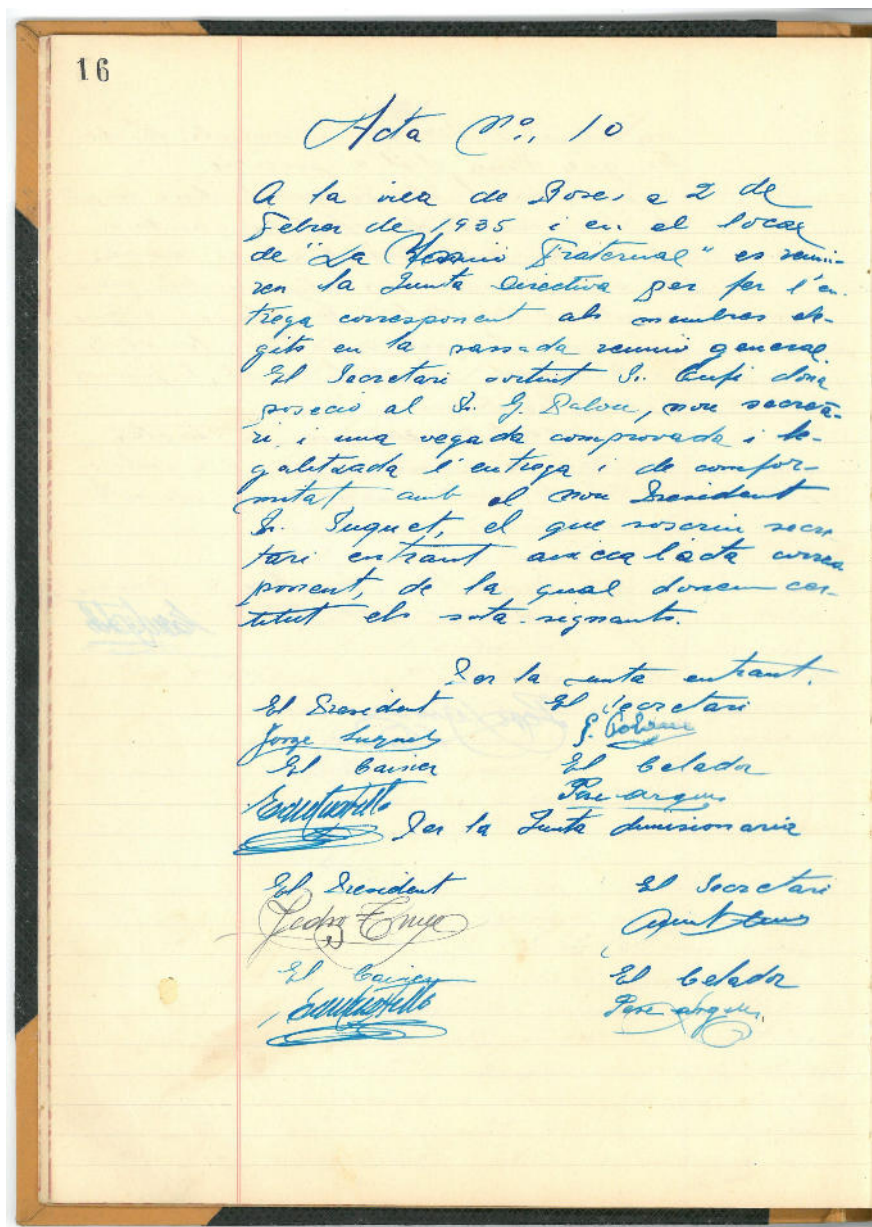 16
Acta Nº, 10
A la vila de Roses a 2 de
Febrer de 1935 i en el local
de "La Fraternal" es reuni-
ren la Junta Directiva per fer l'en-
trega corresponent als membres ele-
gits en la passada reunió general.
El Secretari sortint Sr. Cufí dona
posecio al Sr. G. Palou, nou secreta-
ri, i una vegada comprovada i le-
galitzada l'entrega i de confor-
mitat amb el nou President
Sr. Suquet, el que soscriu secre-
tari entrant aixeca l'acta corres
ponent, de la qual donem cer-
titut els sota-signants.
Per la junta entrant.
El President El Secretari
Jorge Suquet G. Palou
El Caixer El Celador
Pere Argus
Per la Junta dimisionaria
El President El Secretari
Pedro
El Caixer El Celador
Pere Argus